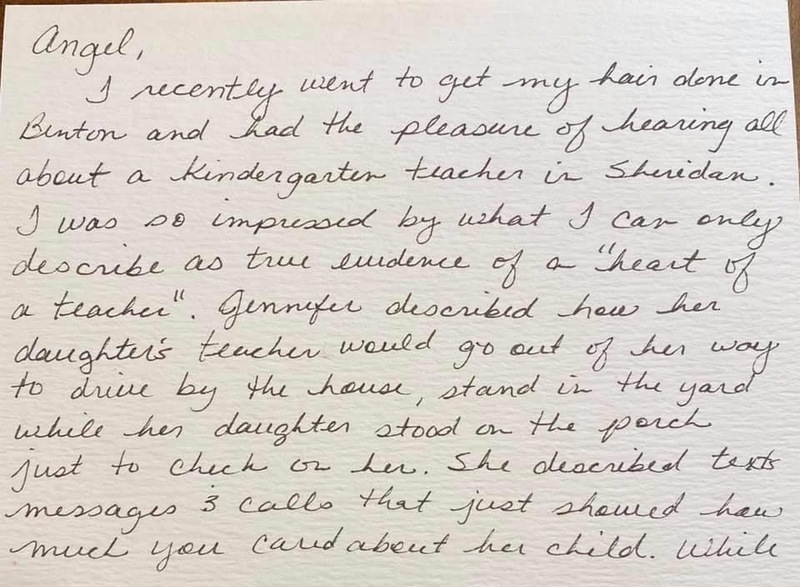 Angel,
I recently went to get my hair done in
Benton and had the pleasure of hearing all
about a kindergarten teacher in Sheridan.
I was so impressed by what I can only
describe as true evidence of a "heart of
a teacher". Jennifer described how her
daughter's teacher would go out of her way
to drive by the house, stand in the yard
while her daughter stood on the porch
just to check on her. She described texts
messages & calls that just showed how
much you cared about her child. While